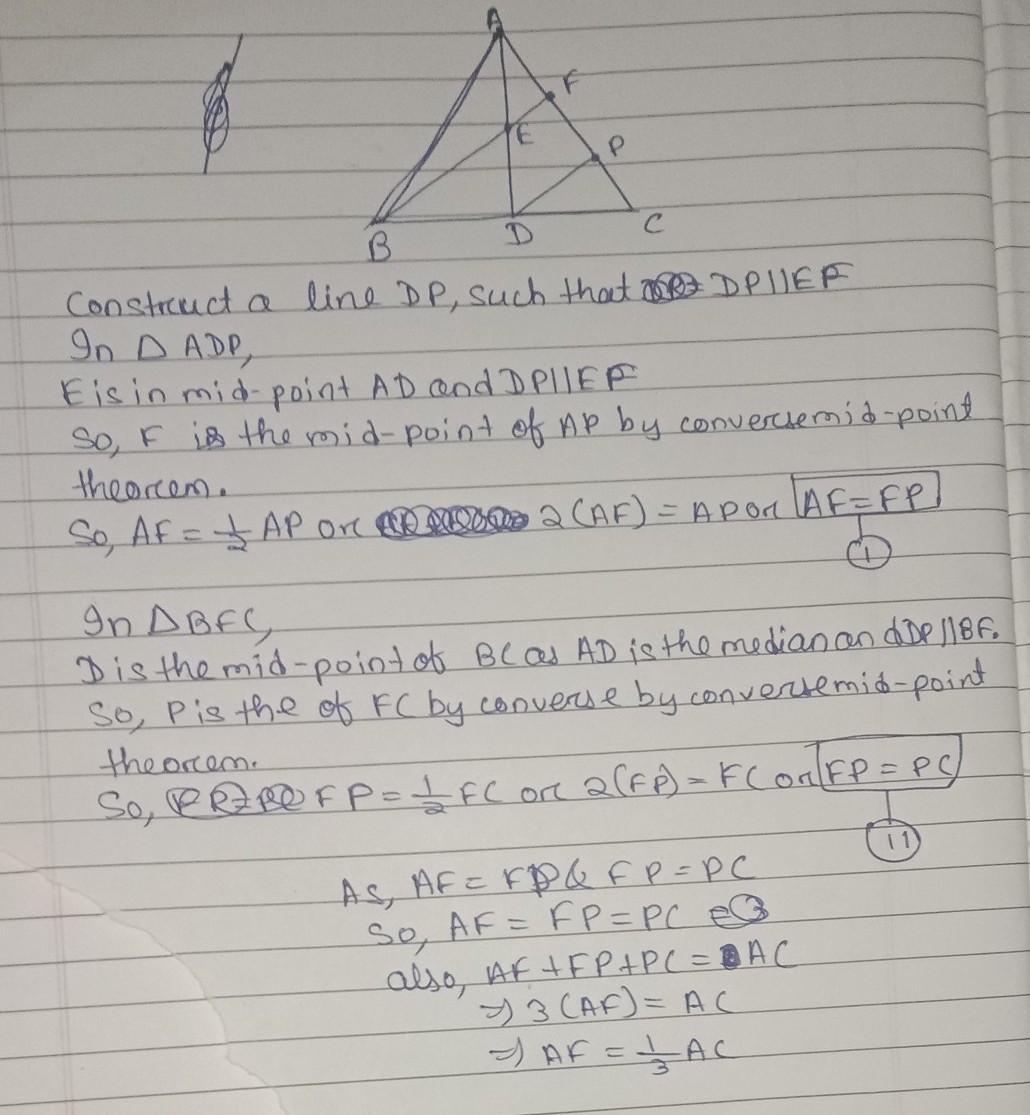 A
F
E
P
B
D
C
Construct a line DP, such that DP||EF
In △ ADP,
E is in mid-point AD and DP||EF
So, F is the mid-point of AP by converse mid-point
theorem.
So, AF = 1/2 AP or 2(AF) = AP or AF = FP
1
In △BFC,
D is the mid-point of BC as AD is the median and DP||BF.
So, P is the of FC by converse by converse mid-point
theorem.
So, FP = 1/2 FC or 2(FP) = FC or FP = PC
11
As, AF = FP & FP = PC
So, AF = FP = PC 3
also, AF + FP + PC = AC
⇒ 3(AF) = AC
⇒ AF = 1/3 AC